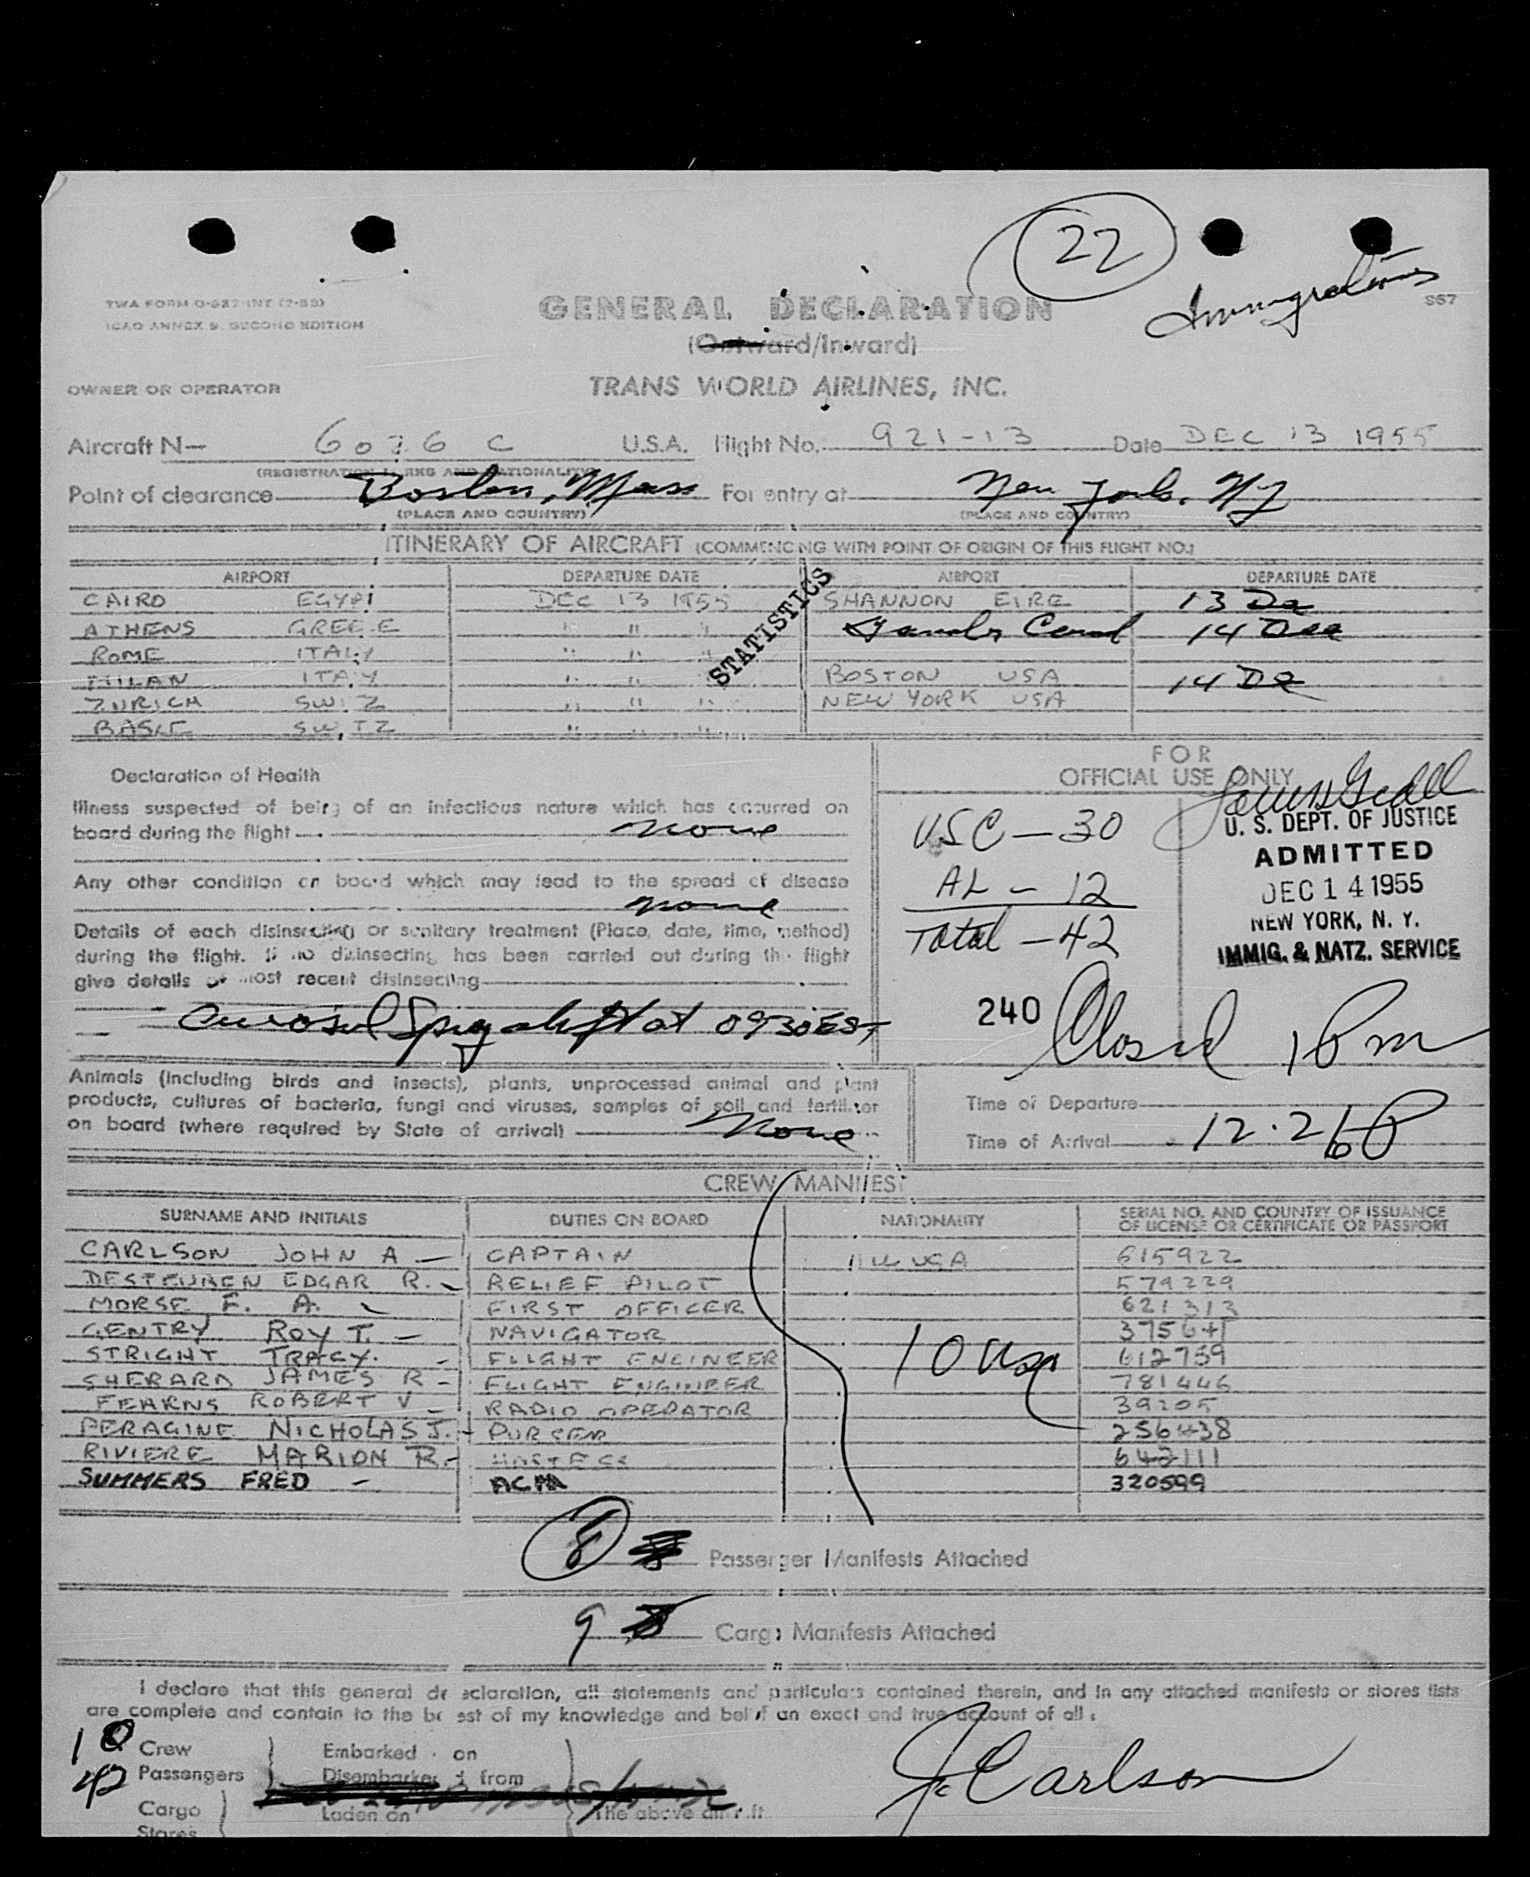 22
Immigrations
TWA FORM O-937-INT (7-55)
S67
ICAO ANNEX 9, SECOND EDITION
GENERAL DECLARATION
(Outward/Inward)
OWNER OR OPERATOR
TRANS WORLD AIRLINES, INC.
Aircraft N— C U.S.A. Flight No. 921-13 Date DEC 13 1955
(REGISTRATION MARKS AND NATIONALITY)
Point of clearance Boston, Mass For entry at New York, NY
(PLACE AND COUNTRY) (PLACE AND COUNTRY)
ITINERARY OF AIRCRAFT (COMMENCING WITH POINT OF ORIGIN OF THIS FLIGHT NO.)
AIRPORT DEPARTURE DATE AIRPORT DEPARTURE DATE
CAIRO EGYPT DEC 13 1955 SHANNON EIRE 13 De
ATHENS GREECE " " " Gander 14 Dec
ROME ITALY " " "
MILAN ITALY " " " BOSTON USA 14 De
ZURICH SWITZ " " " NEW YORK USA
BASLE SWITZ " " "
STATISTICS
Declaration of Health
FOR
OFFICIAL USE ONLY
Illness suspected of being of an infectious nature which has occurred on
board during the flight none
Any other condition on board which may lead to the spread of disease
none
Details of each disinsecting or sanitary treatment (Place, date, time, method)
during the flight. If no disinsecting has been carried out during the flight
give details of most recent disinsecting
at 0930 EST
USC — 30
AL — 12
Total — 42
U. S. DEPT. OF JUSTICE
ADMITTED
DEC 14 1955
NEW YORK, N. Y.
IMMIG. & NATZ. SERVICE
240 Closed 1 Pm
Animals (including birds and insects), plants, unprocessed animal and plant
products, cultures of bacteria, fungi and viruses, samples of soil and fertilizer
on board (where required by State of arrival) None
Time of Departure
Time of Arrival 12.26 P
CREW MANIFEST
SURNAME AND INITIALS DUTIES ON BOARD NATIONALITY SERIAL NO. AND COUNTRY OF ISSUANCE
OF LICENSE OR CERTIFICATE OR PASSPORT
CARLSON JOHN A — CAPTAIN USA 615922
EDGAR R. RELIEF PILOT 579229
MORSE F. A. FIRST OFFICER 621313
GENTRY ROY T. — NAVIGATOR 375641
STRIGHT TRACY. - FLIGHT ENGINEER 10 USA 612759
SHERARD JAMES R - FLIGHT ENGINEER 781446
FEARNS ROBERT V — RADIO OPERATOR 39205
PERAGINE NICHOLAS J. - PURSER 256438
RIVIERE MARION R. - HOSTESS 642111
SUMMERS FRED — ACM 320599
8 Passenger Manifests Attached
9 Cargo Manifests Attached
I declare that this general declaration, all statements and particulars contained therein, and in any attached manifests or stores lists
are complete and contain to the best of my knowledge and belief an exact and true account of all:
10 Crew Embarked on
42 Passengers Disembarked from
Cargo Laden on The above aircraft
Stores
J. Carlson